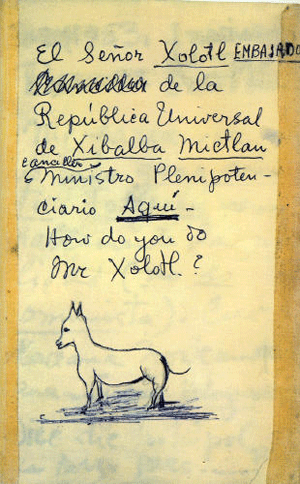 El Señor Xolotl EMBAJADO
de la
República Universal
de Xibalba Mictlan
canciller
Ministro Plenipoten-
ciario Aquí -
How do you do
Mr Xolotl.?